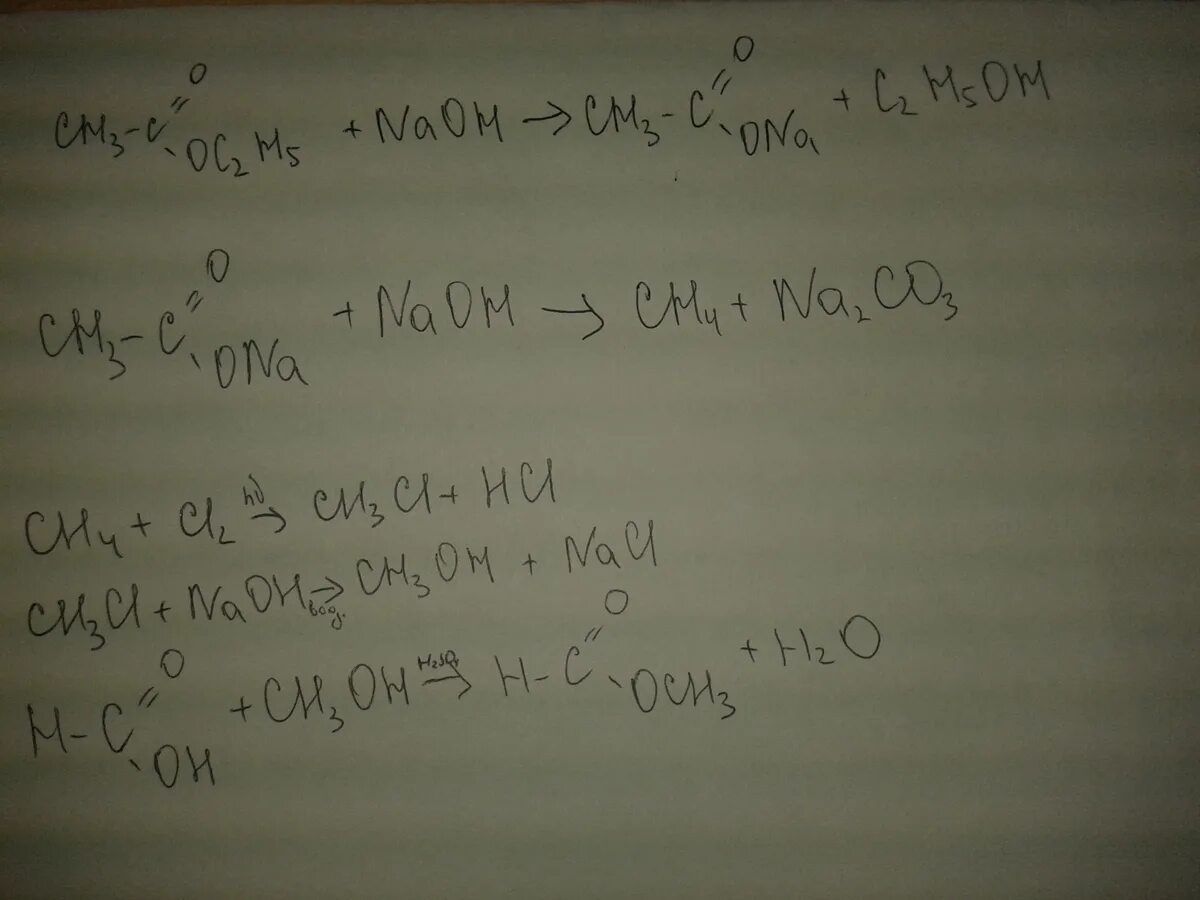 CH₃-C(=O)-OC₂H₅ + NaOH → CH₃-C(=O)-ONa + C₂H₅OH
CH₃-C(=O)-ONa + NaOH → CH₄ + Na₂CO₃
CH₄ + Cl₂ →(hν) CH₃Cl + HCl
CH₃Cl + NaOH →(вод.) CH₃OH + NaCl
H-C(=O)-OH + CH₃OH →(H₂SO₄) H-C(=O)-OCH₃ + H₂O